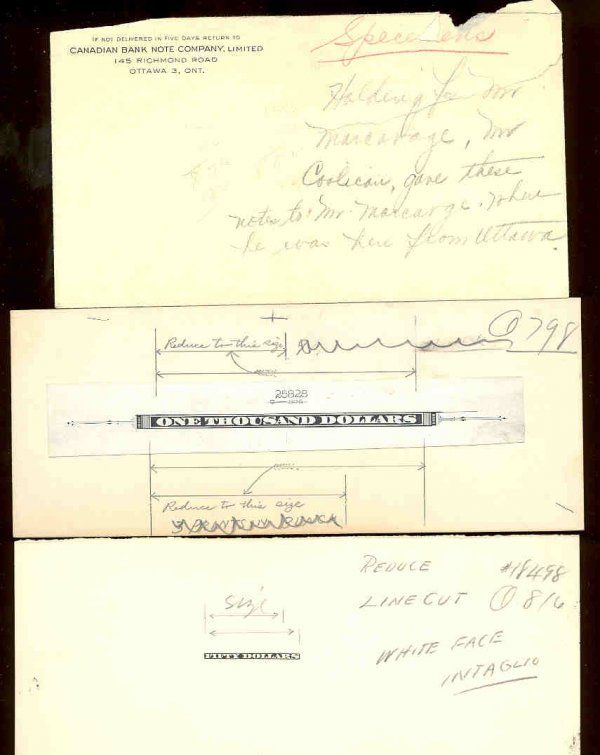 IF NOT DELIVERED IN FIVE DAYS RETURN TO
CANADIAN BANK NOTE COMPANY, LIMITED
145 RICHMOND ROAD
OTTAWA 3, ONT.
Specimens
Holding for Mr
Marcarage, Mr
Coolican, gave these
notes to Mr Marcarge, when
he was here from Ottawa
Reduce to this size
798
25828
ONE THOUSAND DOLLARS
Reduce to this size
REDUCE #18498
LINE CUT 816
WHITE FACE
INTAGLIO
size
FIFTY DOLLARS